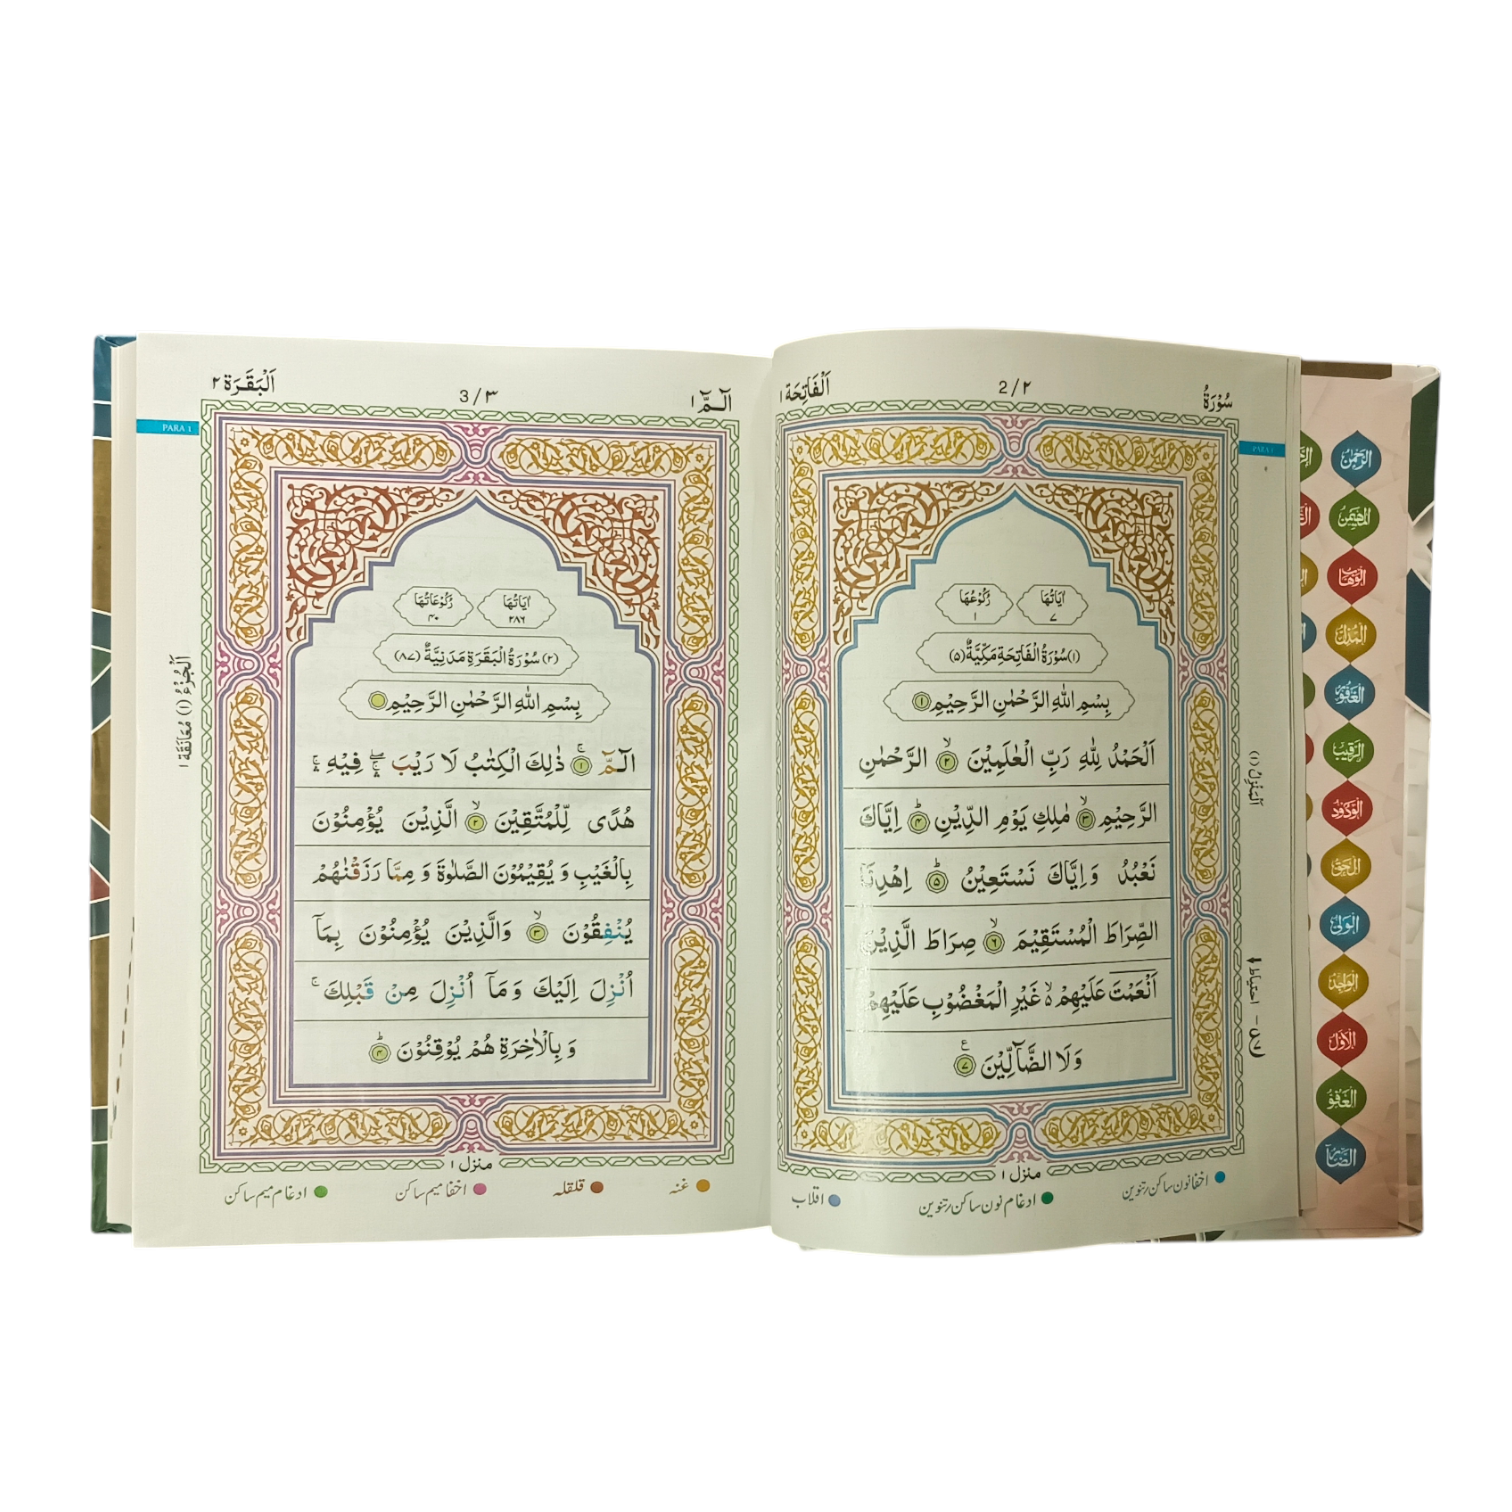 سُوْرَةُ
2/٢
اَلْفَاتِحَة ١
PARA 1
اٰيَاتُهَا
٧
رُكُوْعُهَا
١
(١) سُوْرَةُ الْفَاتِحَةِ مَكِّيَّةٌ (٥)
بِسْمِ اللهِ الرَّحْمٰنِ الرَّحِيْمِ ١
اَلْحَمْدُ لِلّٰهِ رَبِّ الْعٰلَمِيْنَ ۙ ٢ الرَّحْمٰنِ
الرَّحِيْمِ ۙ ٣ مٰلِكِ يَوْمِ الدِّيْنِ ؕ ٤ اِيَّاكَ
نَعْبُدُ وَ اِيَّاكَ نَسْتَعِيْنُ ؕ ٥ اِهْدِنَا
الصِّرَاطَ الْمُسْتَقِيْمَ ۙ ٦ صِرَاطَ الَّذِيْنَ
اَنْعَمْتَ عَلَيْهِمْ ۙ۬ غَيْرِ الْمَغْضُوْبِ عَلَيْهِمْ
وَلَا الضَّآلِّيْنَ ٧
ع
منزل ١
اَلْمَنْزِلُ (١)
احتیاط
اخفا نون ساکن/تنوین
ادغام نون ساکن/تنوین
اقلاب
الٓمّٓ ١
3/٣
اَلْبَقَرَة ٢
PARA 1
اٰيَاتُهَا
٢٨٦
رُكُوْعَاتُهَا
٤٠
(٢) سُوْرَةُ الْبَقَرَةِ مَدَنِيَّةٌ (٨٧)
بِسْمِ اللهِ الرَّحْمٰنِ الرَّحِيْمِ
الٓمّٓ ۚ ١ ذٰلِكَ الْكِتٰبُ لَا رَيْبَ ۛۖ فِيْهِ ۛۚ
هُدًى لِّلْمُتَّقِيْنَ ۙ ٢ الَّذِيْنَ يُؤْمِنُوْنَ
بِالْغَيْبِ وَ يُقِيْمُوْنَ الصَّلٰوةَ وَ مِمَّا رَزَقْنٰهُمْ
يُنْفِقُوْنَ ۙ ٣ وَالَّذِيْنَ يُؤْمِنُوْنَ بِمَآ
اُنْزِلَ اِلَيْكَ وَ مَآ اُنْزِلَ مِنْ قَبْلِكَ ۚ
وَ بِالْاٰخِرَةِ هُمْ يُوْقِنُوْنَ ؕ ٤
منزل ١
اَلْجُزْءُ (١) مُعَانَقَة ١
غنہ
قلقلہ
اخفا میم ساکن
ادغام میم ساکن
الرَّحْمٰنُ
الْمُهَيْمِنُ
الْوَهَّابُ
الْمُذِلُّ
الْغَفُوْرُ
الرَّقِيْبُ
الْوَدُوْدُ
الْحَقُّ
الْوَلِيُّ
الْوَاجِدُ
الْاَوَّلُ
الْعَفُوُّ